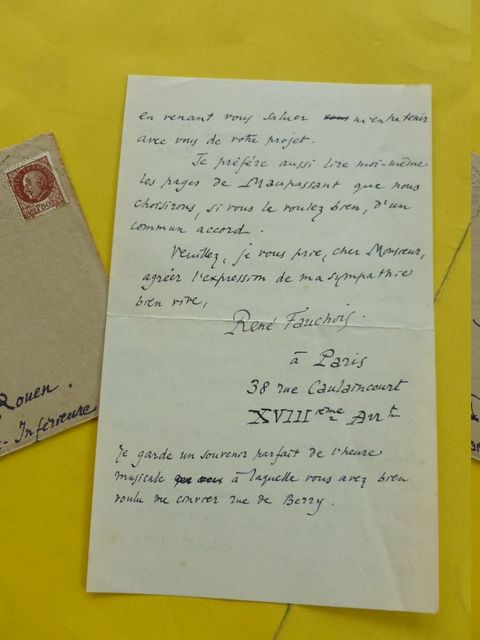 en venant vous saluer vous m'entretenir
avec vous de votre projet.
Je préfère aussi lire moi-même
les pages de Maupassant que nous
choisirons, si vous le voulez bien, d'un
commun accord.
Veuillez, je vous prie, cher Monsieur,
agréer l'expression de ma sympathie
bien vive,
René Fauchois.
à Paris
38 rue Caulaincourt
XVIII ème Arrt
Je garde un souvenir parfait de l'heure
musicale à laquelle vous avez bien
voulu me convier rue de Berry.
Rouen.
Inférieure